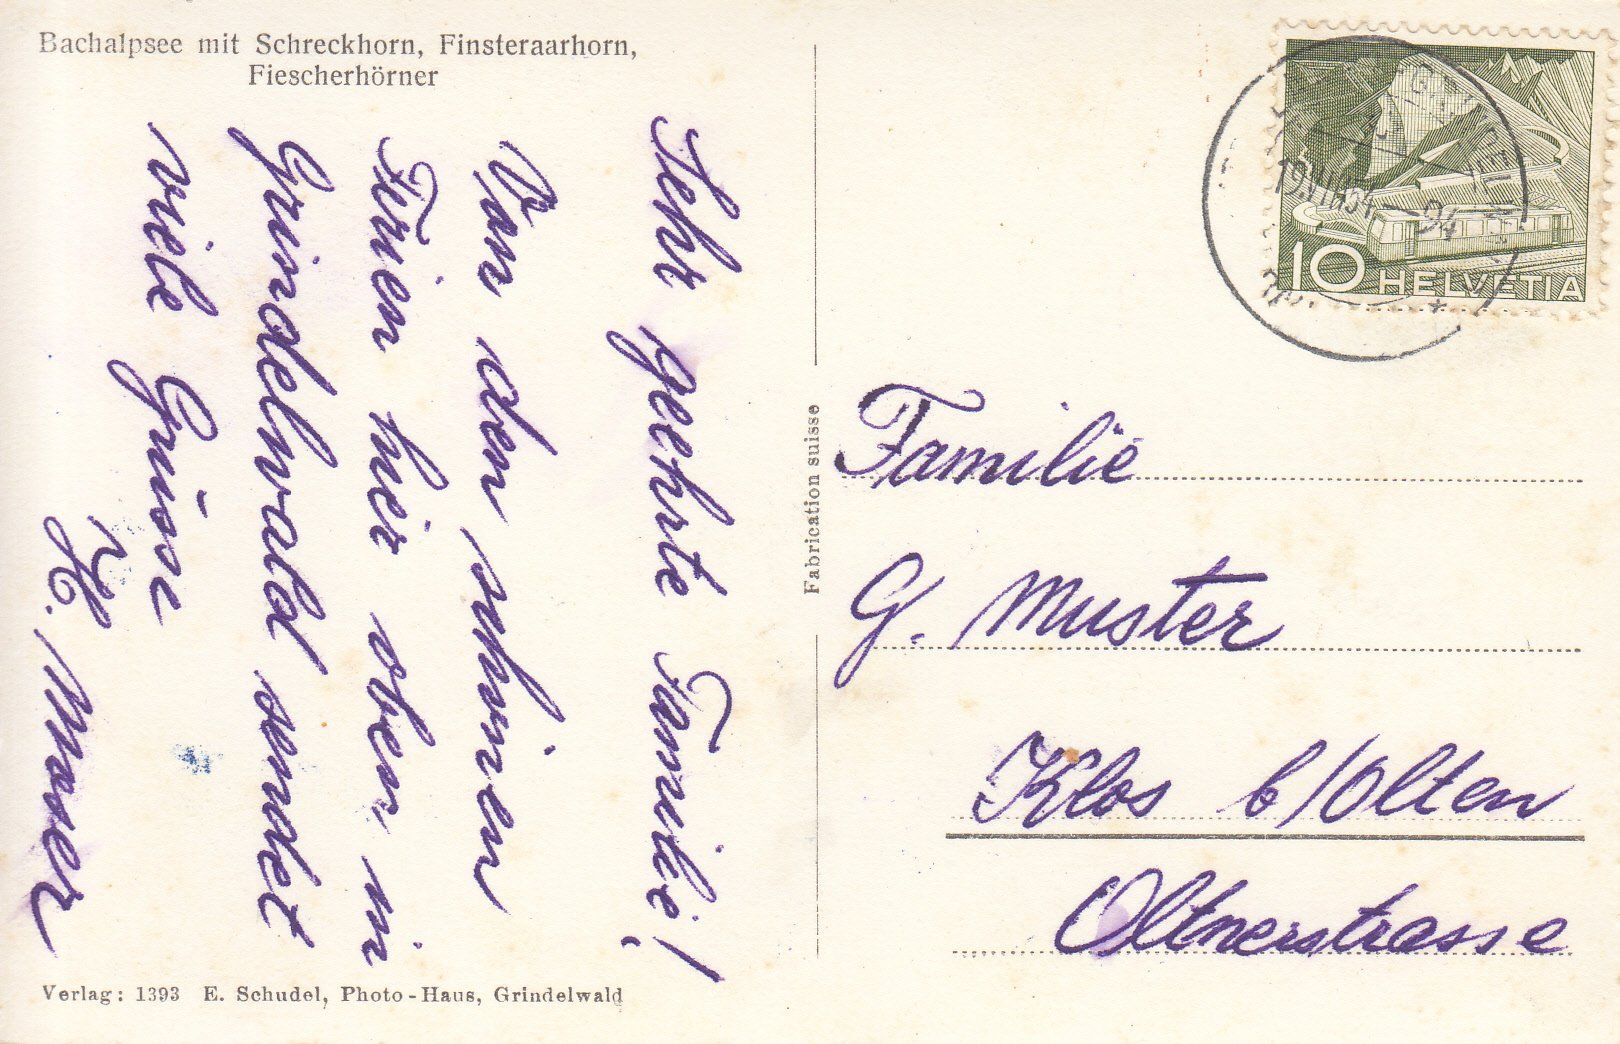 Bachalpsee mit Schreckhorn, Finsteraarhorn,
Fiescherhörner
Sehr geehrte Familie!
Von den schönen
Ferien hier oben in
Grindelwald sendet
viele Grüsse
H. Moser
Verlag: 1393 E. Schudel, Photo-Haus, Grindelwald
Fabrication suisse
10 HELVETIA
Familie
G. Muster
Klos b/Olten
Oltnerstrasse